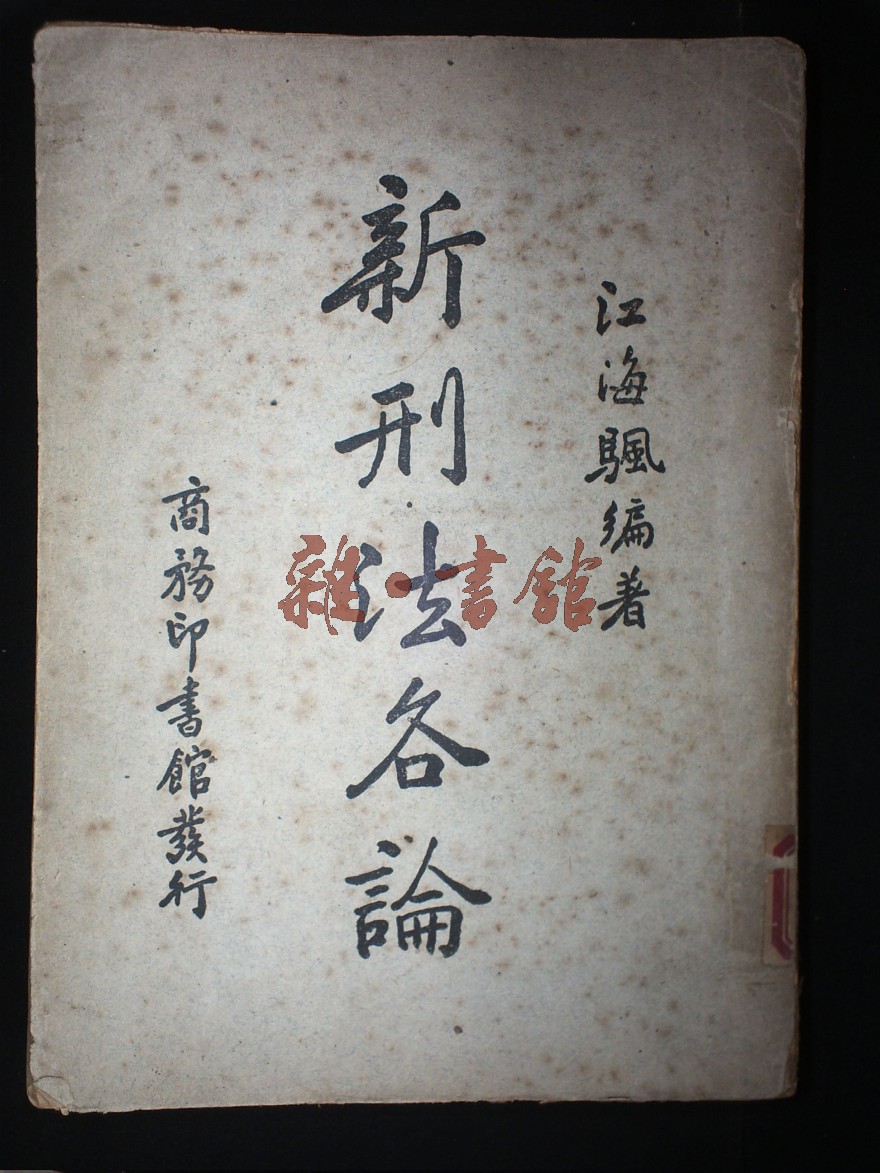 江海颿編著
新刑法各論
商務印書館發行
雜·書館